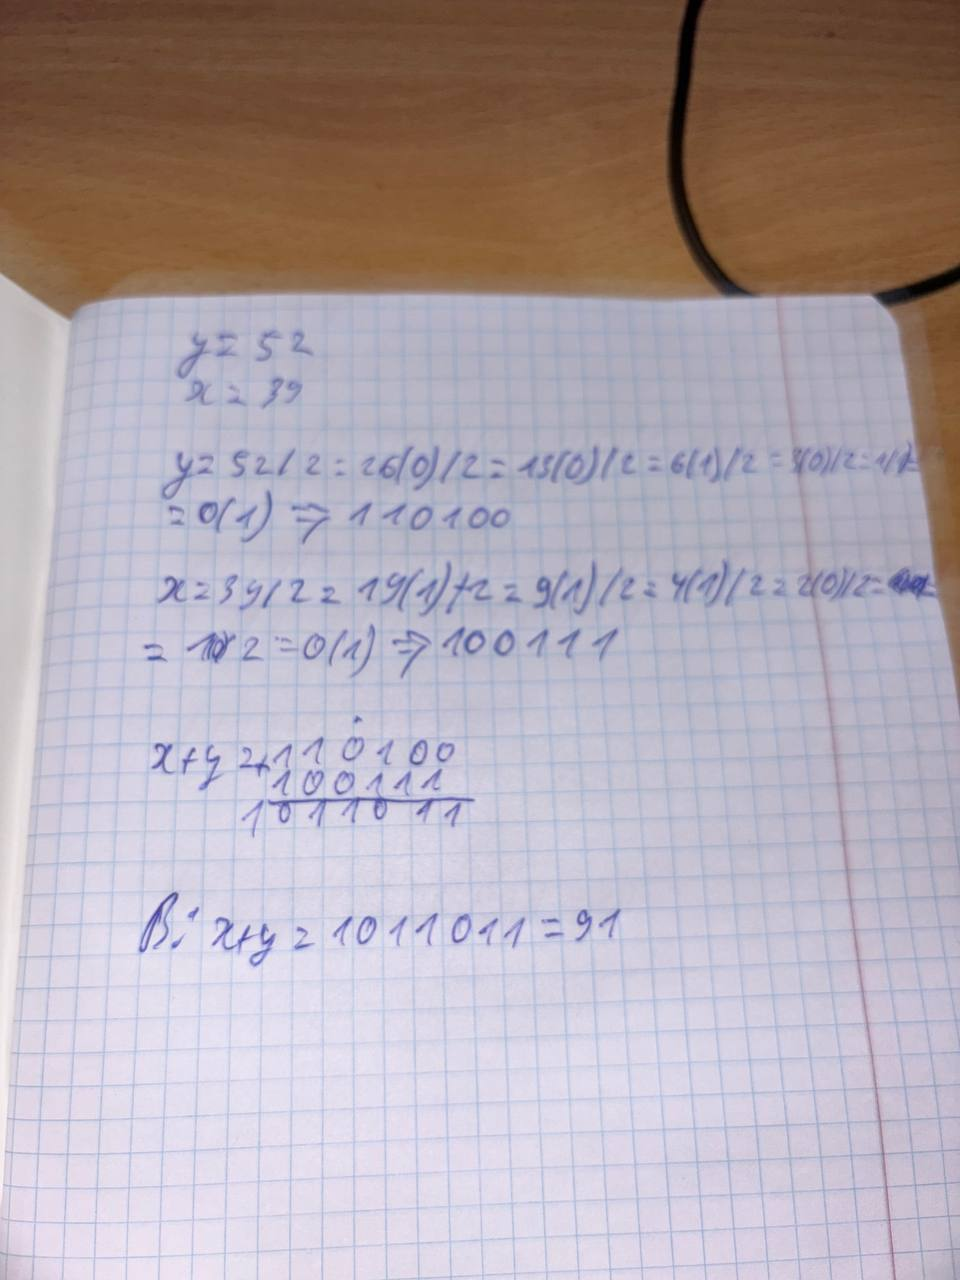 y = 52
x = 39
y = 52/2 = 26(0)/2 = 13(0)/2 = 6(1)/2 = 3(0)/2 = 1(1)=
= 0(1) ⇒ 110100
x = 39/2 = 19(1)/2 = 9(1)/2 = 4(1)/2 = 2(0)/2 =
= 2 = 0(1) ⇒ 100111
x+y = + 110100
100111
1011011
В: x+y = 1011011 = 91